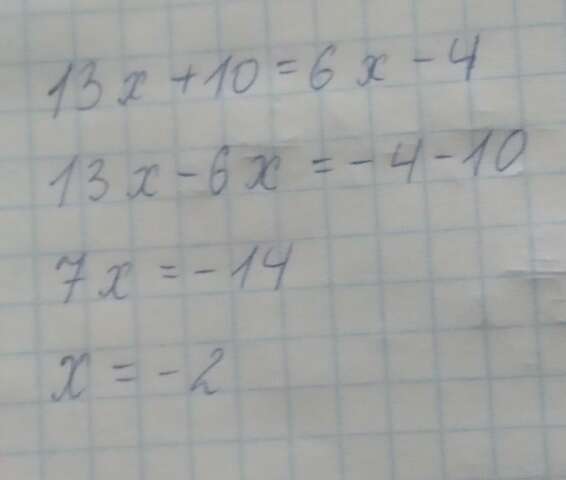 13x + 10 = 6x - 4
13x - 6x = -4 - 10
7x = -14
x = -2